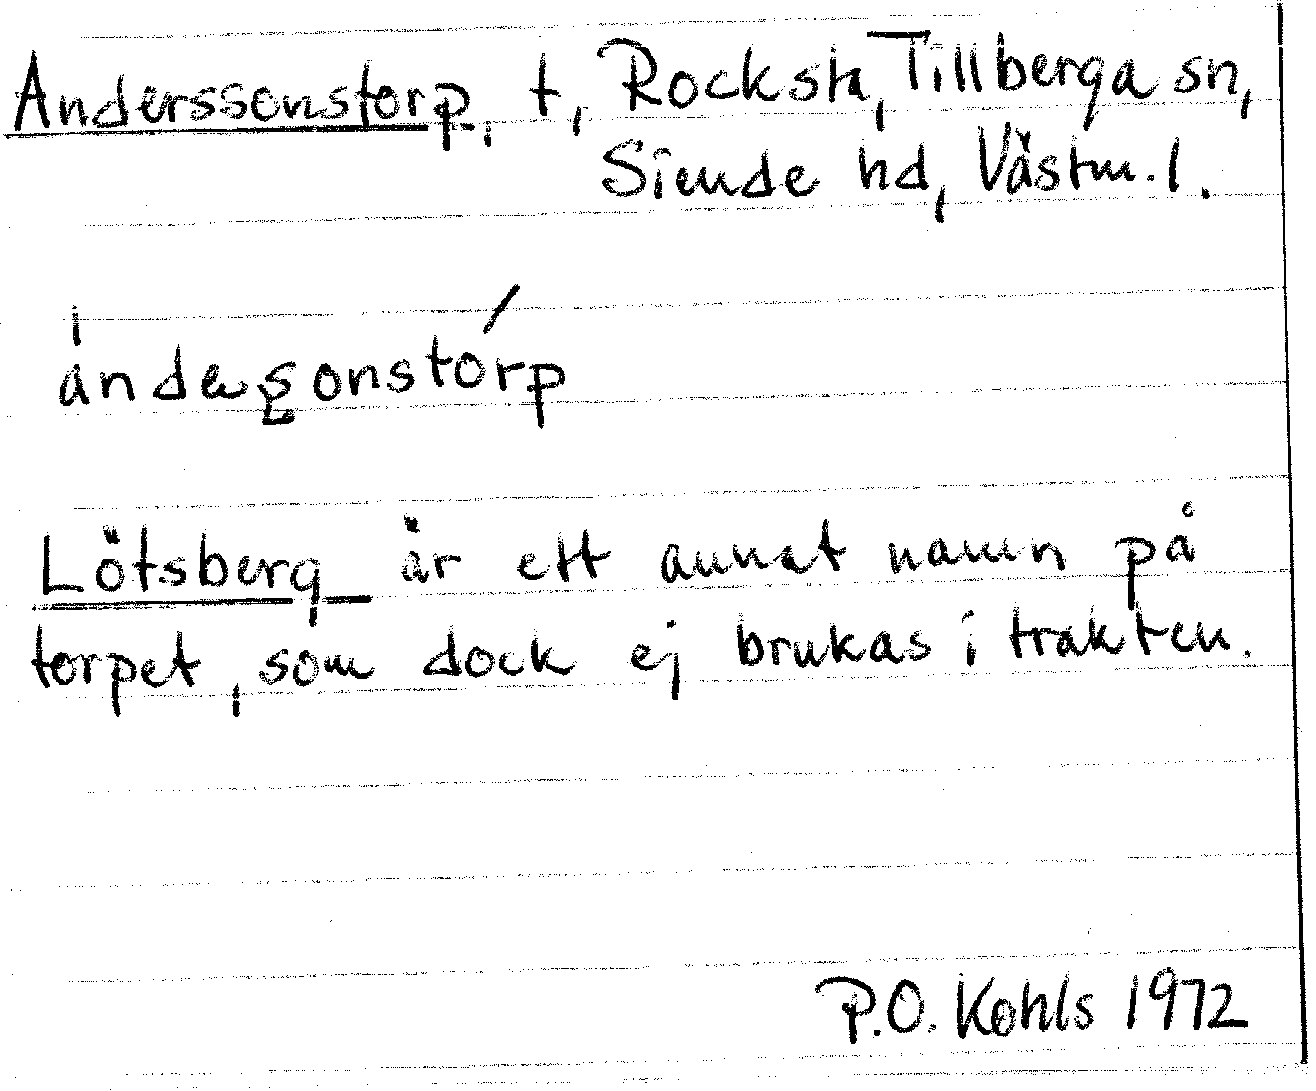 Anderssonstorp, t, Rocksta, Tillberga sn,
Siende hd, Västm. l.
àndeʂonstórp
Lötsberg är ett annat namn på
torpet, som dock ej brukas i trakten.
P.O. Kohls 1972